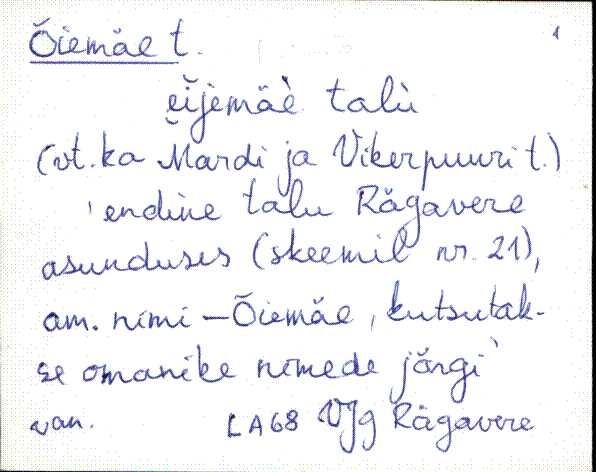 Õiemäe t. 1
ei̬jemäè talù
(vt. ka Mardi ja Vikerpuuri t.)
'endine talu Rägavere
asunduses (skeemil nr. 21),
am. nimi – Õiemäe, kutsutak-
se omanike nimede järgi'
van. LA68 VJg Rägavere